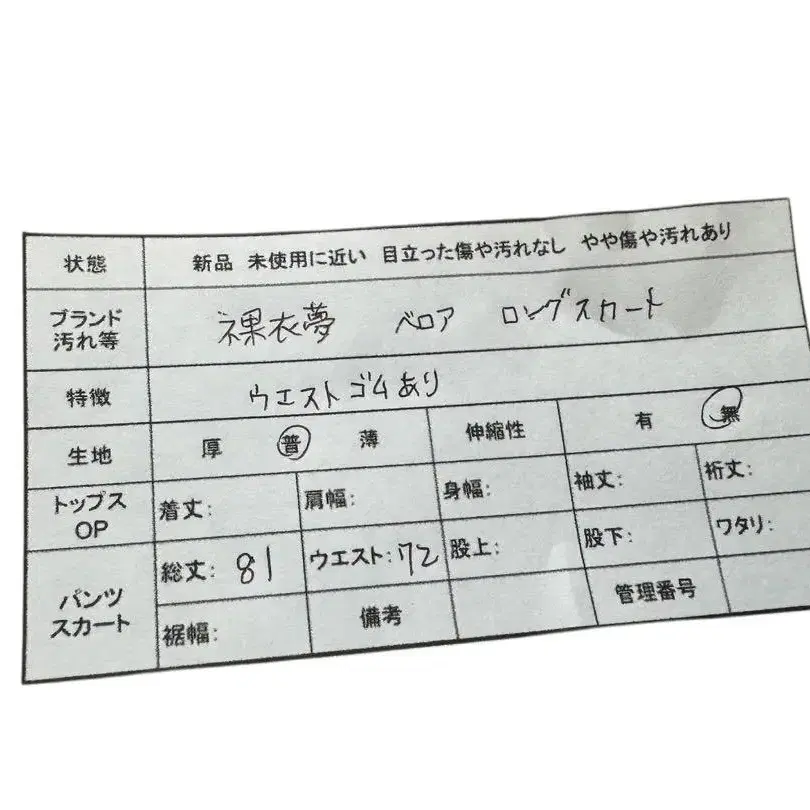 状態 新品 未使用に近い 目立った傷や汚れなし やや傷や汚れあり
ブランド 汚れ等 裸衣夢 ベロア ロングスカート
特徴 ウエストゴムあり
生地 厚 普 薄 伸縮性 有 無
トップス OP 着丈: 肩幅: 身幅: 袖丈: 裄丈:
パンツ スカート 総丈: 81 ウエスト: 72 股上: 股下: ワタリ:
裾幅: 備考 管理番号